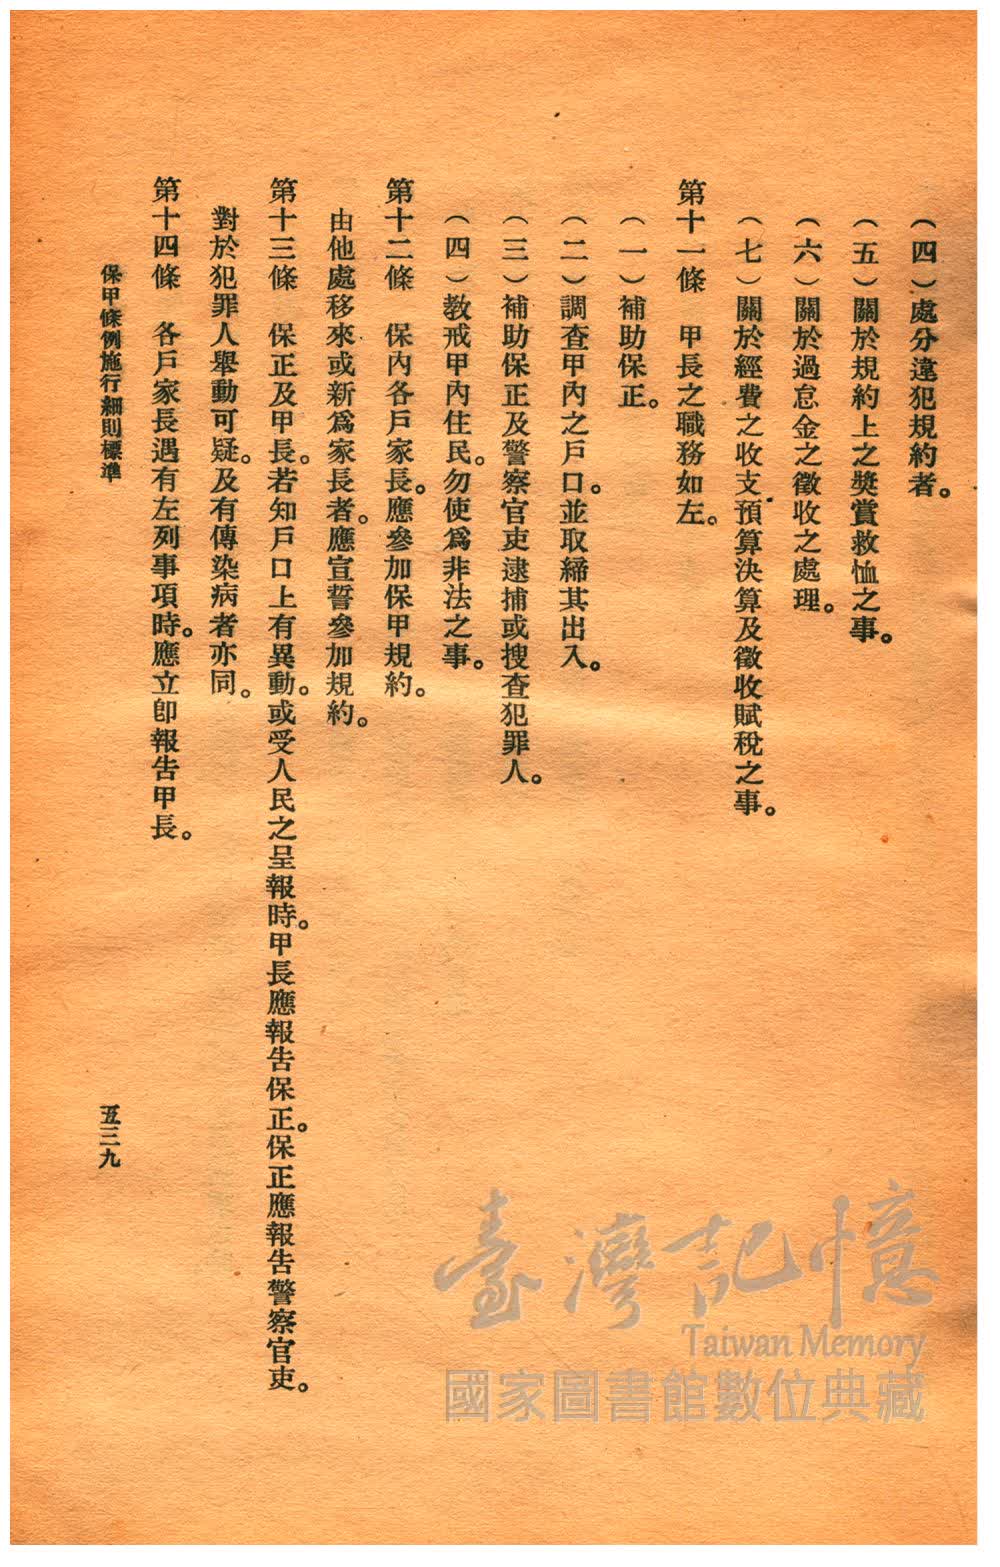 （四）處分違犯規約者。
（五）關於規約上之獎賞救恤之事。
（六）關於過怠金之徵收之處理。
（七）關於經費之收支預算決算及徵收賦稅之事。
第十一條　甲長之職務如左。
（一）補助保正。
（二）調查甲內之戶口。並取締其出入。
（三）補助保正及警察官吏逮捕或搜查犯罪人。
（四）教戒甲內住民。勿使爲非法之事。
第十二條　保內各戶家長。應參加保甲規約。
由他處移來或新爲家長者。應宣誓參加規約。
第十三條　保正及甲長。若知戶口上有異動。或受人民之呈報時。甲長應報告保正。保正應報告警察官吏。
對於犯罪人舉動可疑。及有傳染病者亦同。
第十四條　各戶家長遇有左列事項時。應立卽報告甲長。
保甲條例施行細則標準
五三九
臺灣記憶
Taiwan Memory
國家圖書館數位典藏